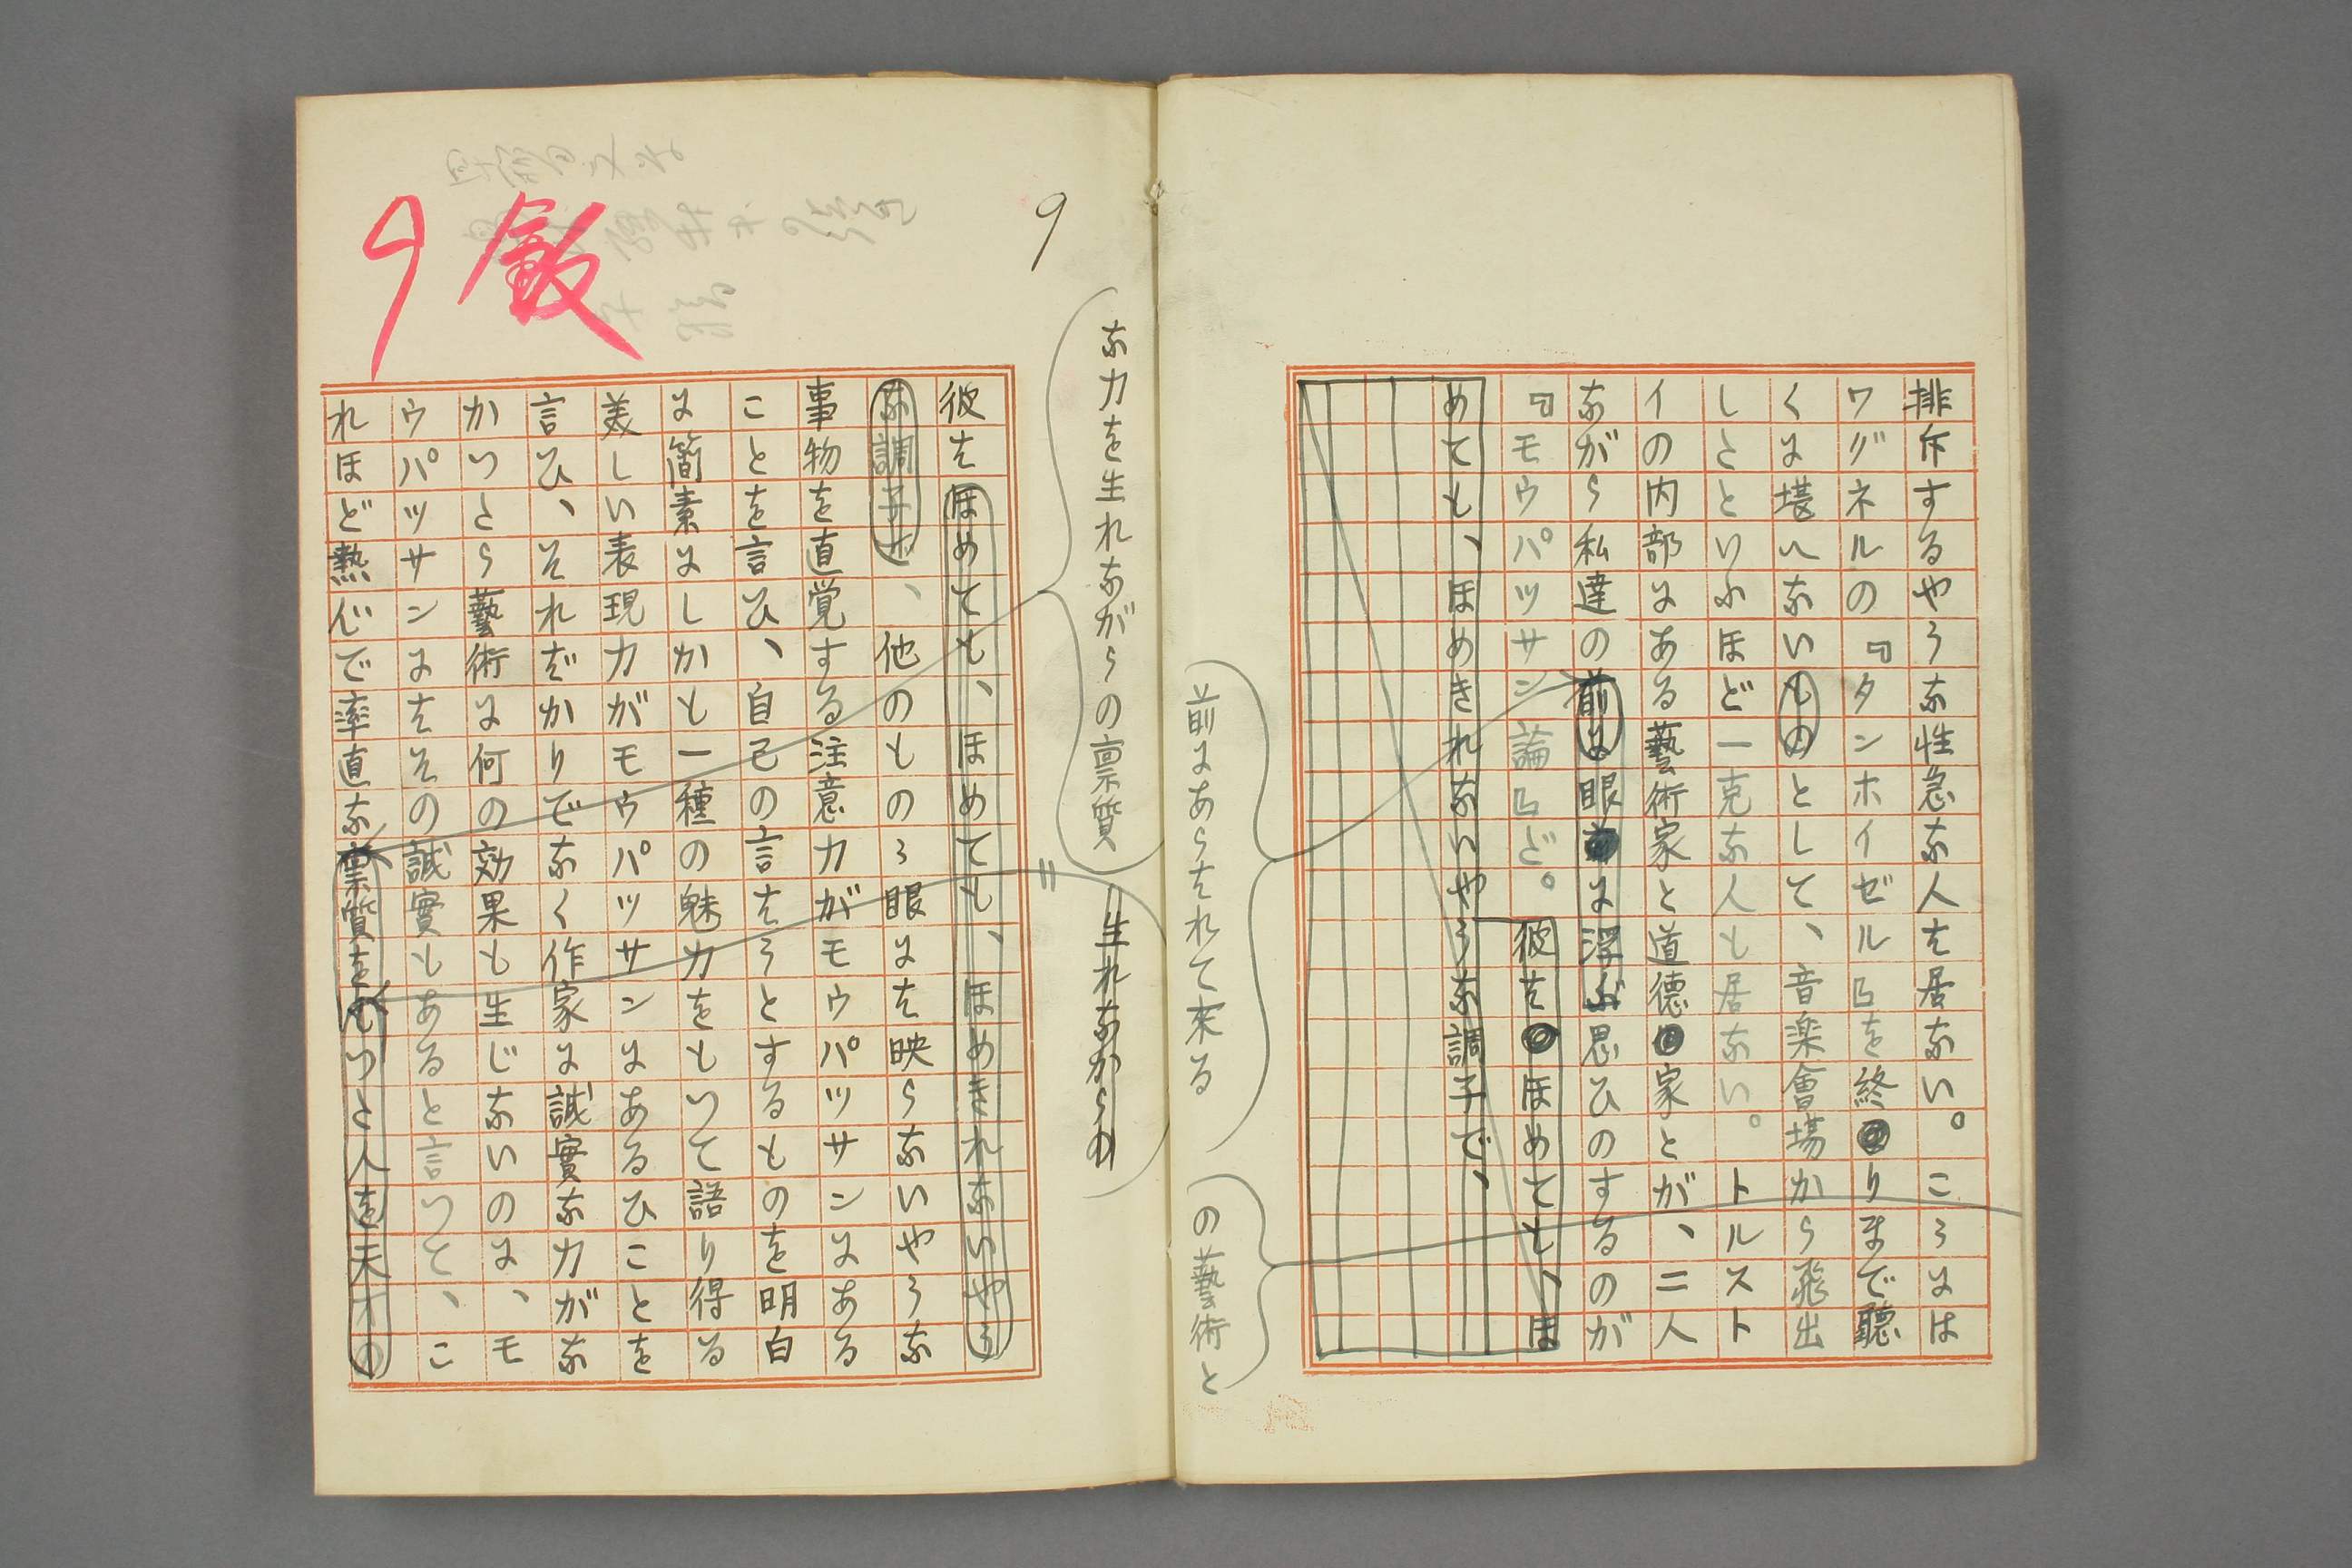 排斥するやうな性急な人も居ない。ころには
ワグネルの『タンホイゼル』を終りまで聽
くに堪へないものとして、音楽會場から飛出
しとといふほど一克な人も居ない。トルスト
イの内部にある藝術家と道徳家とが、二人
ながら私達の前に眼に浮ぶ思ひのするのが
『モウパッサン論』ど。彼はほめても、ほ
めても、ほめきれないやうな調子で、
前にあらはれて来る
の藝術と
な力を生れながらの禀質
生れながらの
9
彼はほめても、ほめても、ほめきれないやう
な調子で、他のものゝ眼には映らないやうな
事物を直覚する注意力がモウパッサンにある
ことを言ひ、自己の言はうとするものを明白
に簡素にしかも一種の魅力をもつて語り得る
美しい表現力がモウパッサンにあるひことを
言ひ、それだかりでなく作家に誠實な力がな
かつとら藝術は何の効果も生じないのに、モ
ウパッサンにはその誠實もあると言つて、こ
れほど熱心で率直な禀質をもつと人を天才の
9 飯